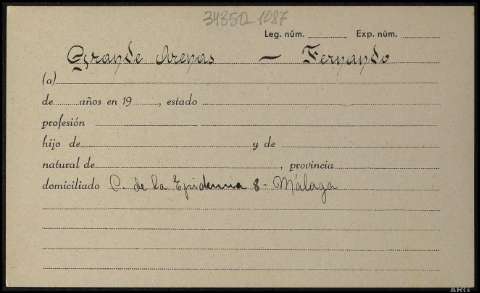 34350-1087
Leg. núm. Exp. núm.
Grande Arenas — Fernando
(a)
de años en 19 , estado
profesión
hijo de y de
natural de , provincia
domiciliado C. de la Epidemia 8 - Málaga